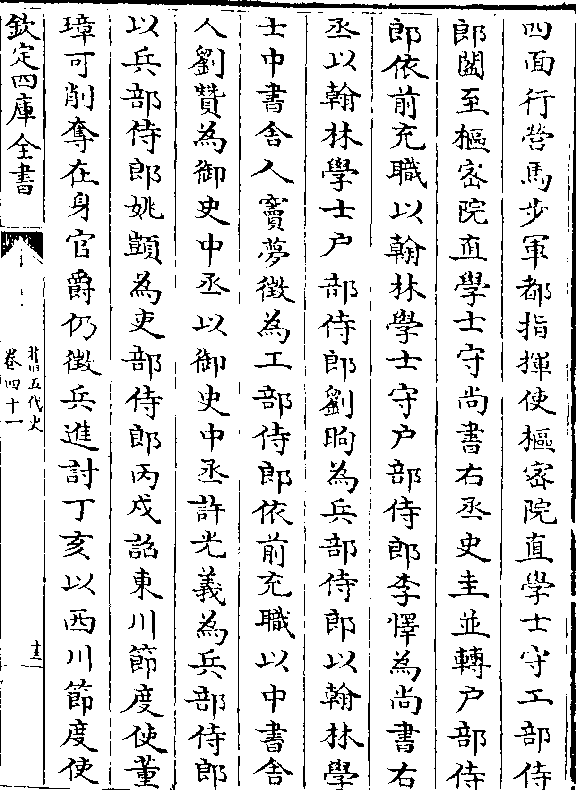 四面行營馬步軍都指揮使樞密院直學士守工部侍
郎閻至樞密院直學士守尚書右丞史圭並轉户部侍
郎依前充職以翰林學士守户部侍郎李懌為尚書右
丞以翰林學士户部侍郎劉昫為兵部侍郎以翰林學
士中書舍人竇夢徵為工部侍郎依前充職以中書舍
人劉贊為御史中丞以御史中丞許光義為兵部侍郎
以兵部侍郎姚顗為吏部侍郎丙戌詔東川節度使董
璋可削奪在身官爵仍徵兵進討丁亥以西川節度使
欽定四庫全書
舊五代史
卷四十一
十三